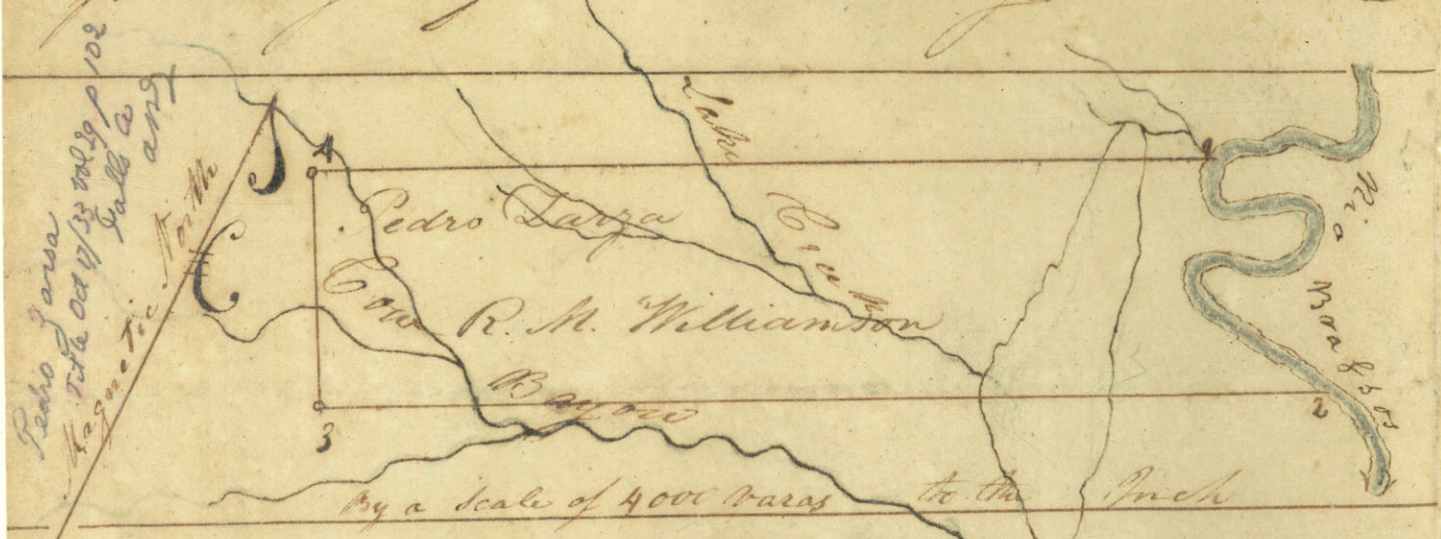 Pedro Garsa
Title Od 17/33 vol. 29 p 102
Falls Co
and
Magnetic North
4
1
Pedro Zarza
Cow
Bayou
R. M. Williamson
Lake
Creek
Rio
Brassos
3
2
By a scale of 4000 varas to the Inch